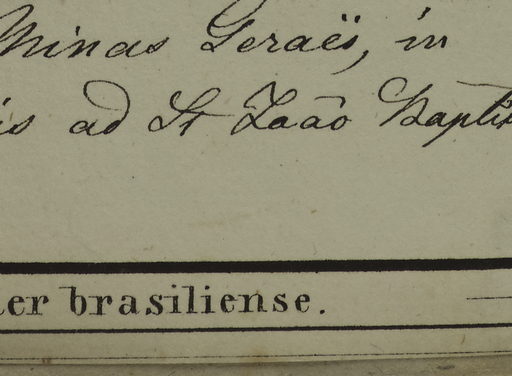 Minas Geraës, in
is ad St Joaõ Baptis
ter brasiliense.